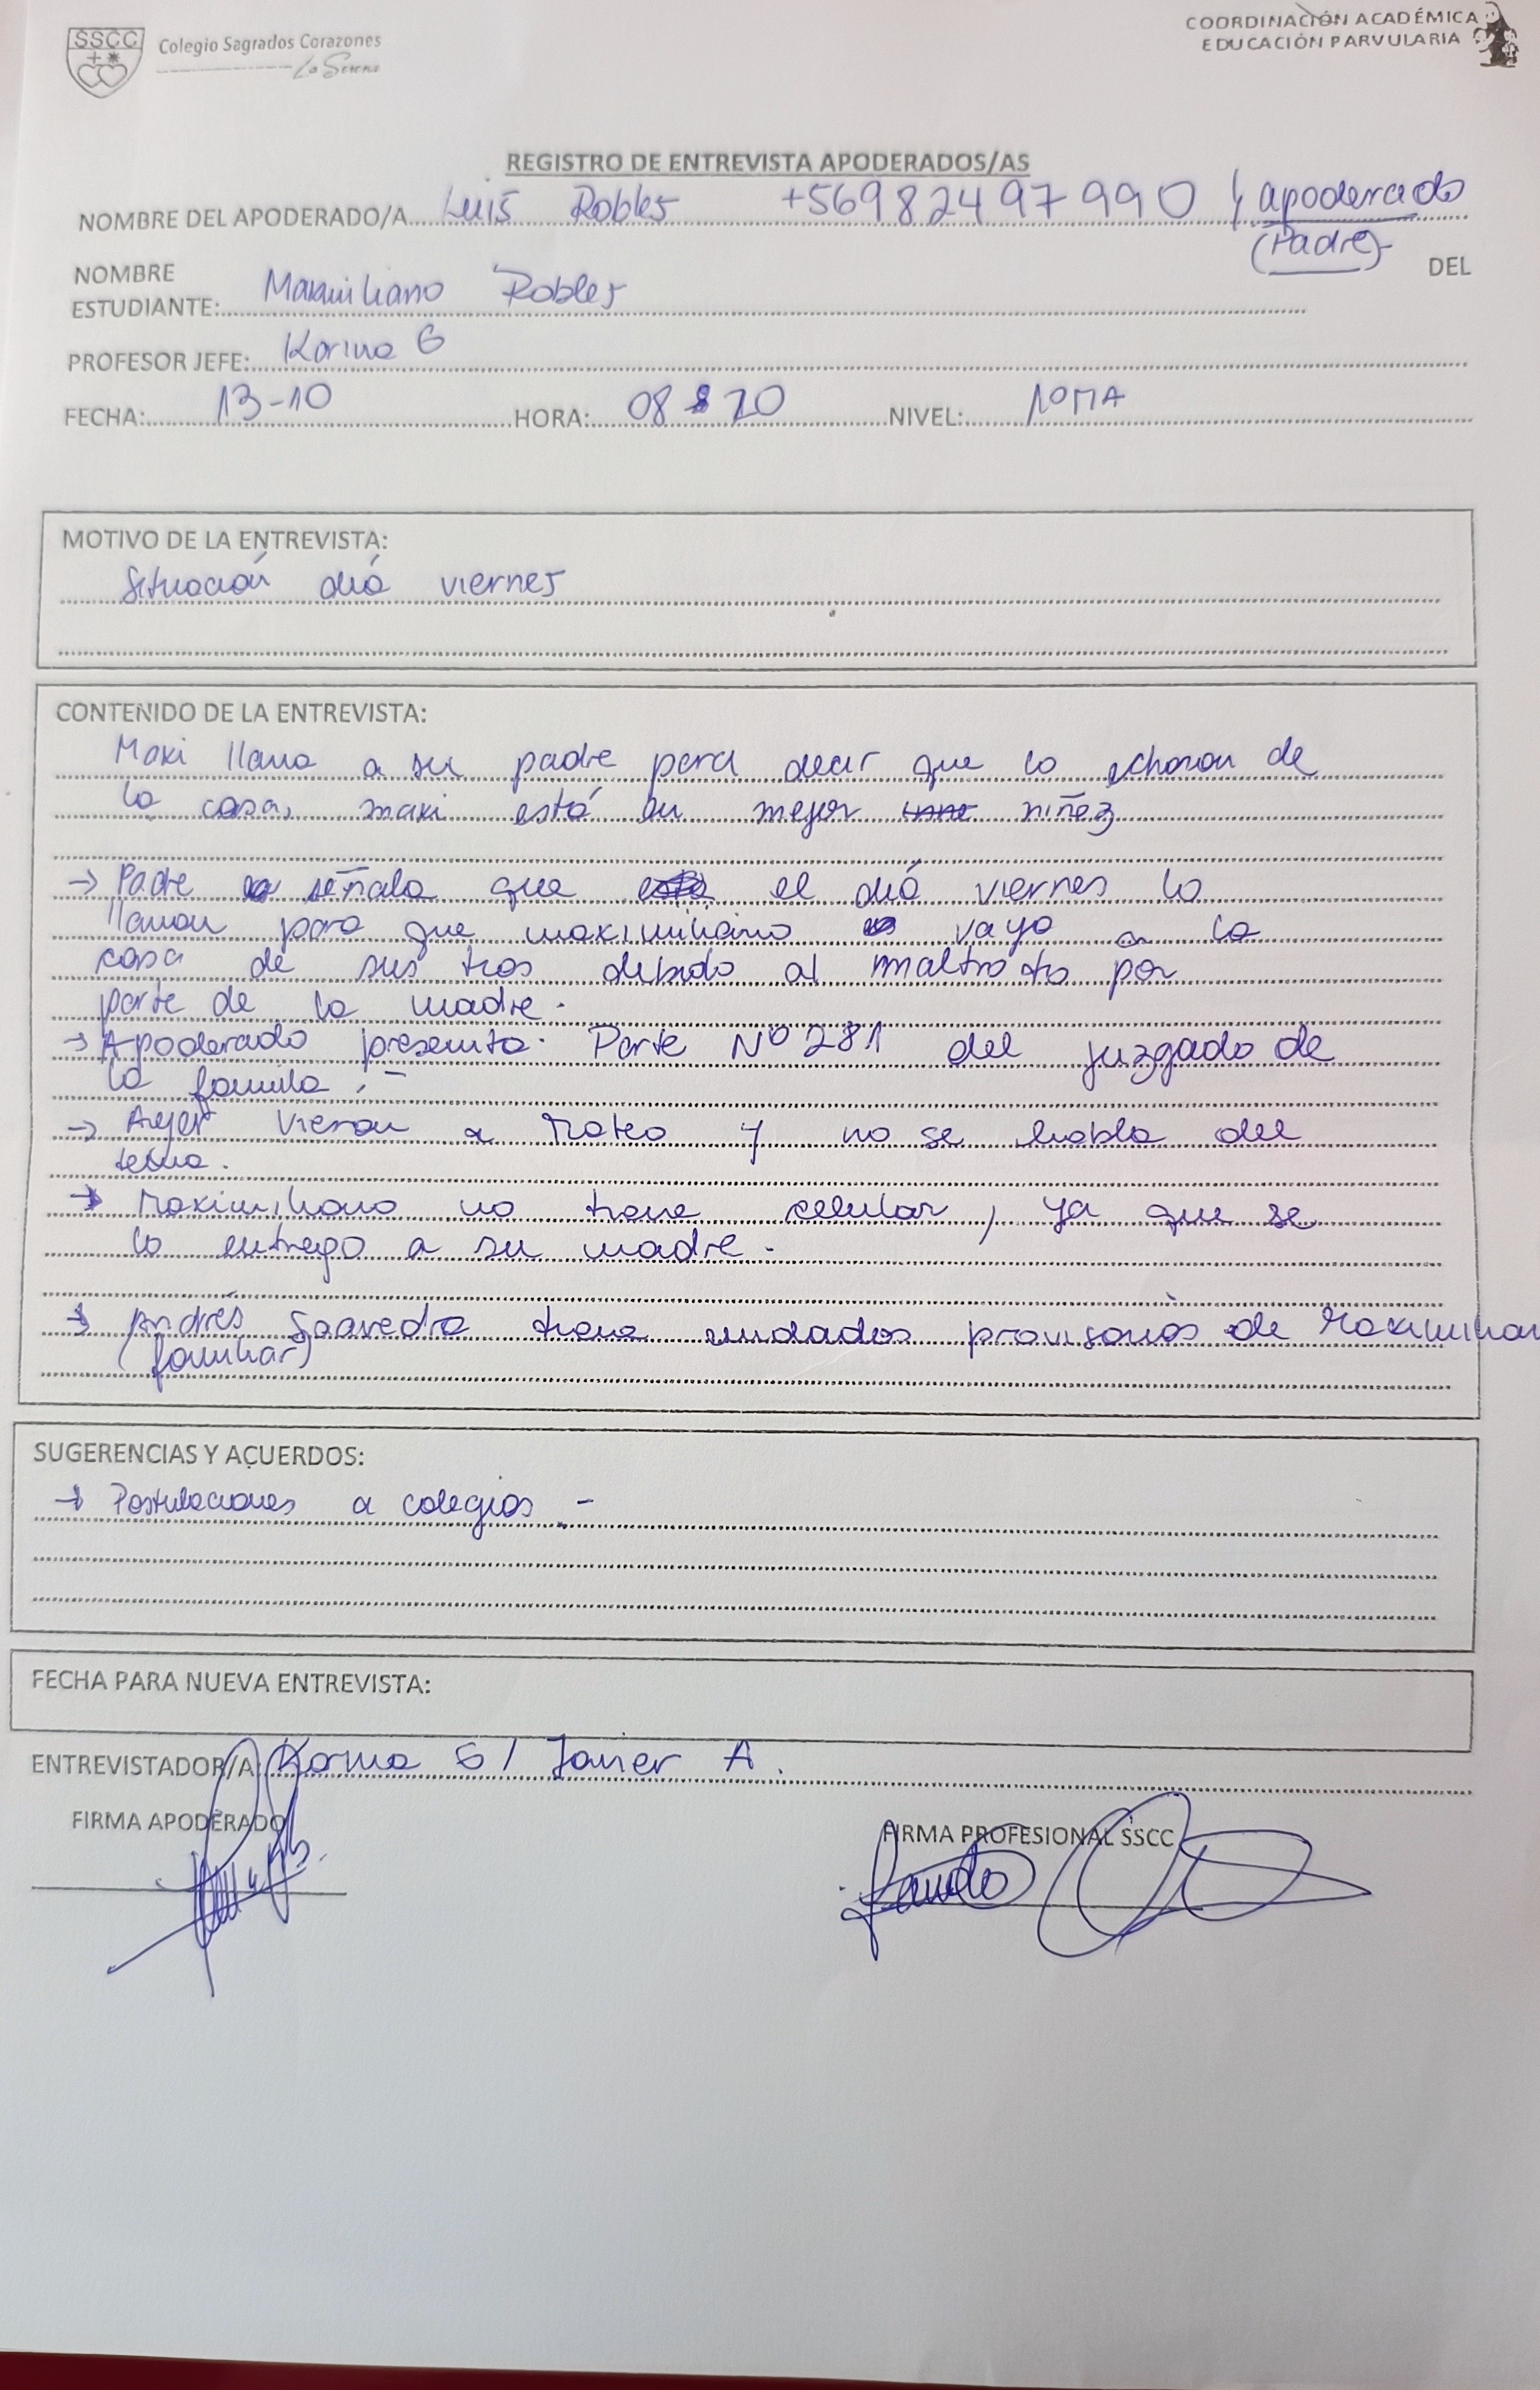 SSCC
Colegio Sagrados Corazones
La Serena
COORDINACIÓN ACADÉMICA
EDUCACIÓN PARVULARIA
REGISTRO DE ENTREVISTA APODERADOS/AS
NOMBRE DEL APODERADO/A Luis Robles +56982497990 / apoderado
(Padre)
NOMBRE DEL
ESTUDIANTE: Maximiliano Robles
PROFESOR JEFE: Karina G
FECHA: 13-10 HORA: 08 20 NIVEL: 1ºMA
MOTIVO DE LA ENTREVISTA:
Situación día viernes
CONTENIDO DE LA ENTREVISTA:
Maxi llama a su padre para decir que lo echaron de
la casa, maxi está en mejor niñez
→ Padre señala que el día viernes lo
llaman para que maximiliano vaya a la
casa de sus tíos debido al maltrato por
parte de la madre.
→ Apoderado presenta Parte Nº 281 del juzgado de
la familia.-
→ Ayer vieron a Mateo y no se habla del
tema.
→ Maximiliano no tiene celular, ya que se
lo entrego a su madre.
→ Andrés Saavedra tiene cuidados provisorios de Maximilian
(familiar)
SUGERENCIAS Y ACUERDOS:
→ Postulaciones a colegios.-
FECHA PARA NUEVA ENTREVISTA:
ENTREVISTADOR/A: Karina G / Javier A.
FIRMA APODERADO
FIRMA PROFESIONAL SSCC